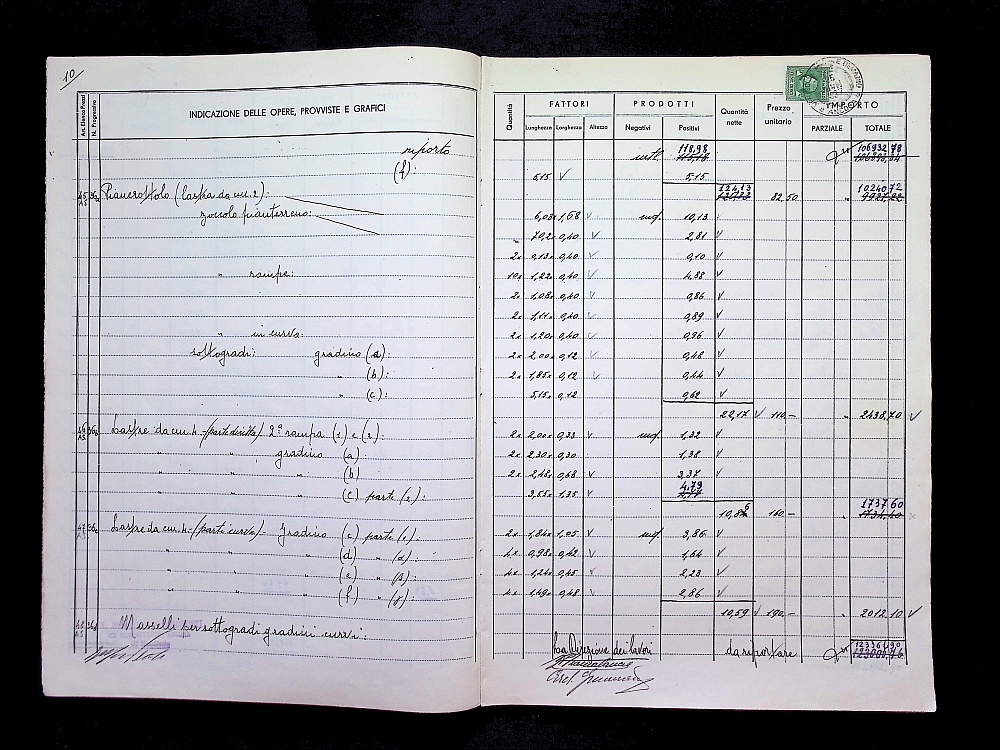 10
Art. Elenco Prezzi
N. Progressivo
INDICAZIONE DELLE OPERE, PROVVISTE E GRAFICI
riporto
(f):
45 A5 36a Piancrottolo (Laspra da cm. 2):
zoccolo pianterreno:
" rampe:
" in curva:
sottogradi: gradino (a):
" (b):
" (c):
46 A5 36b Laspre da cm. 4 - (parte diritta) 2ª rampa (1) e (2):
" " gradino (a):
" " " (b)
" " " (c) parte (2):
47 A5 36c Laspre da cm. 4 - (parte curva) - Gradino (c) parte (1):
" " " (d) " (α):
" " " (e) " (β):
" " " (f) " (γ):
36d Masselli per sottogradi gradini curvi:
Quantità
FATTORI
Lunghezze Larghezze Altezze
PRODOTTI
Negativi Positivi
Quantità nette
Prezzo unitario
IMPORTO
PARZIALE TOTALE
118,98 106932,78
5,15 5,15
124,13 10240,72
82,50
6,03 x 1,68 mq. 10,13
70,2 x 0,40 2,81
2x 0,13 x 0,40 0,10
10x 1,22 x 0,40 4,88
2x 1,08 x 0,40 0,86
2x 1,11 x 0,40 0,89
2x 1,20 x 0,40 0,96
2x 2,00 x 0,12 0,48
2x 1,85 x 0,12 0,44
5,15 x 0,12 0,62
22,17 110.- " 2438,70
2x 2,00 x 0,33 mq. 1,32
2x 2,30 x 0,30 1,38
2x 2,48 x 0,68 3,37
3,55 x 1,35 4,79
1737,60
10,86 160.- "
2x 1,84 x 1,05 mq. 3,86
4x 0,98 x 0,42 1,64
4x 1,24 x 0,45 2,23
4x 1,49 x 0,48 2,86
10,59 190.- " 2012,10
La Direzione dei lavori da riportare
123361,90